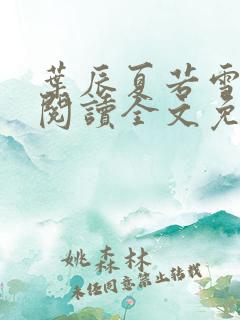 葉辰夏若雪
閱讀全文免
姚森林
未經同意禁止轉載